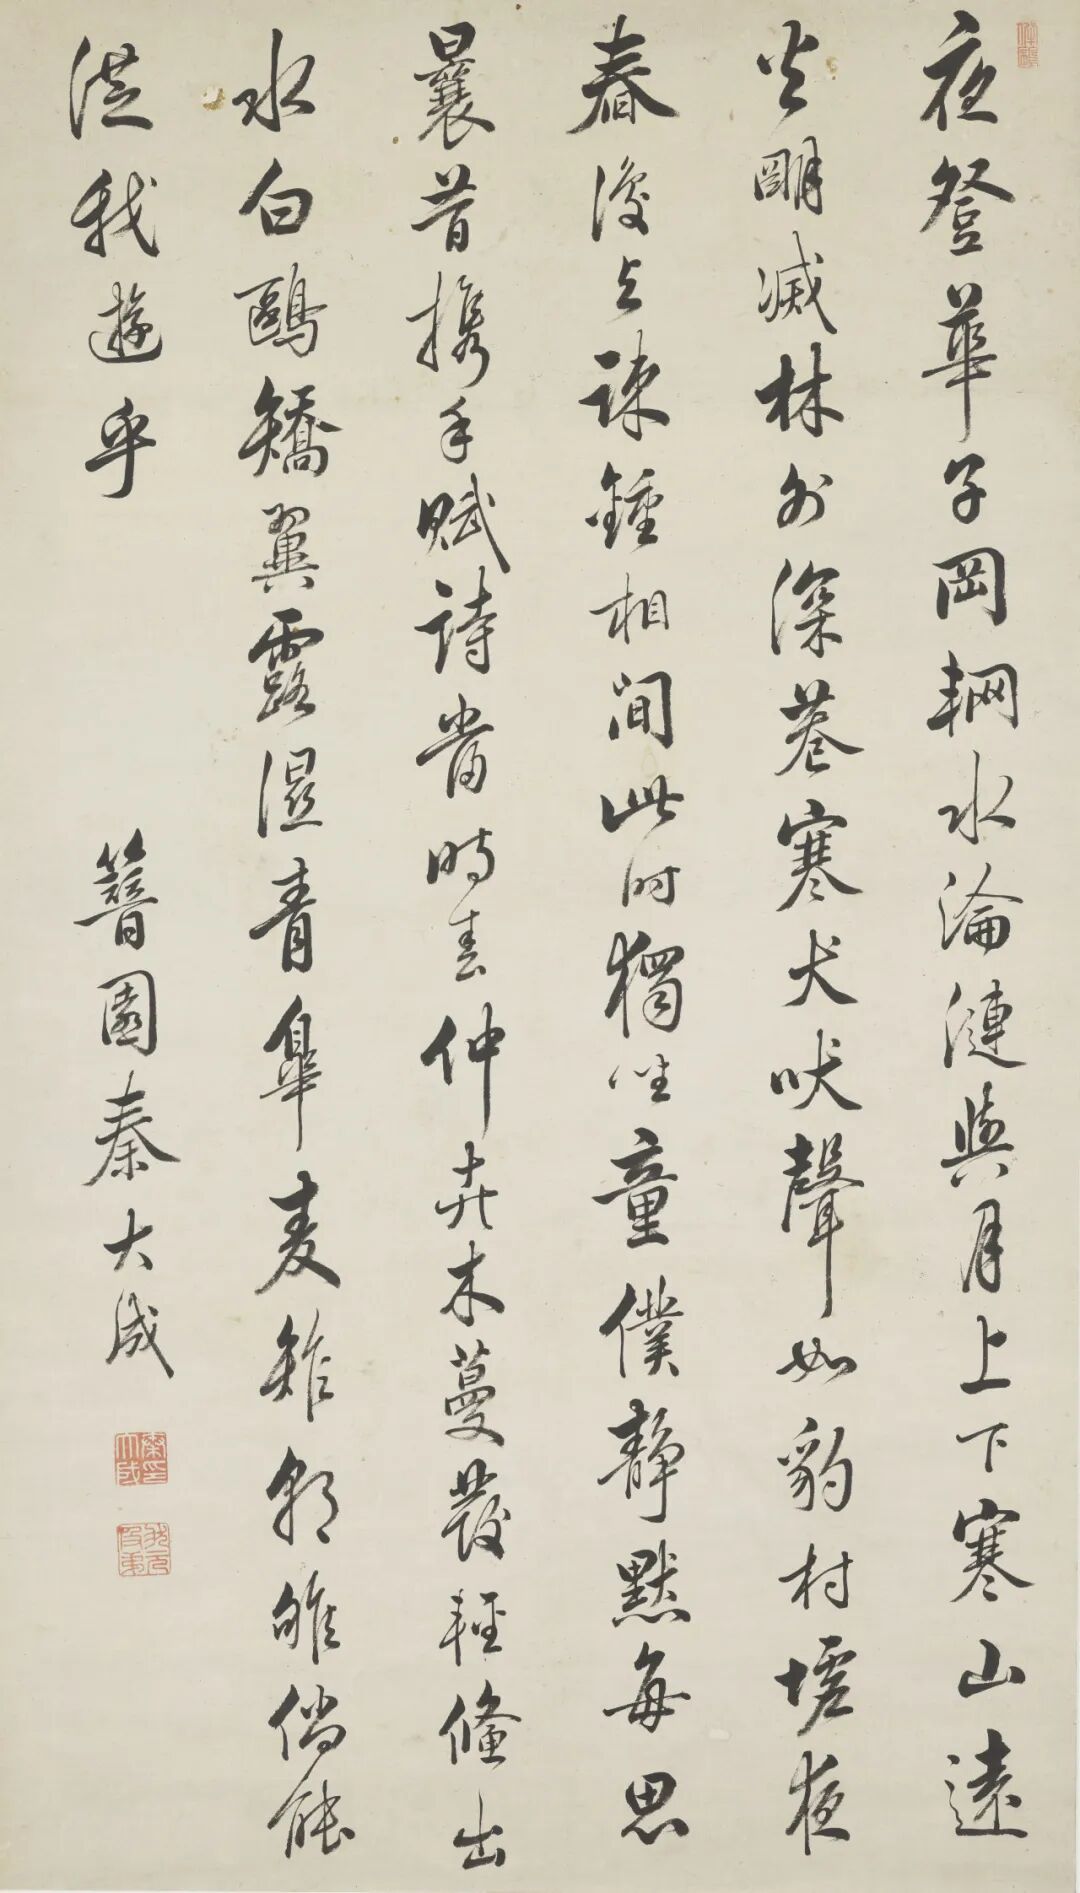 夜登華子岡輞水淪漣與月上下寒山遠
火明滅林外深巷寒犬吠聲如豹村墟夜
舂復与疎鍾相間此時獨坐童僕靜默每思
曩昔携手賦詩當時春仲卉木蔓發輕鯈出
水白鷗矯翼露溼青臯麦雉朝雊倘能
從我遊乎
簪園秦大成
秦印大成